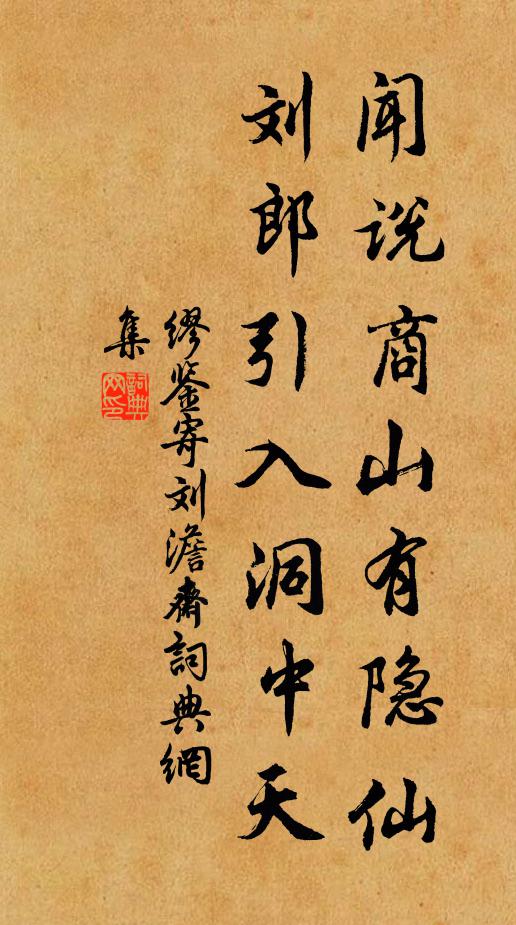 闻说商山有隐仙
刘郎引入洞中天
缪鉴寄刘澹斋词典網
集
詞典
网印